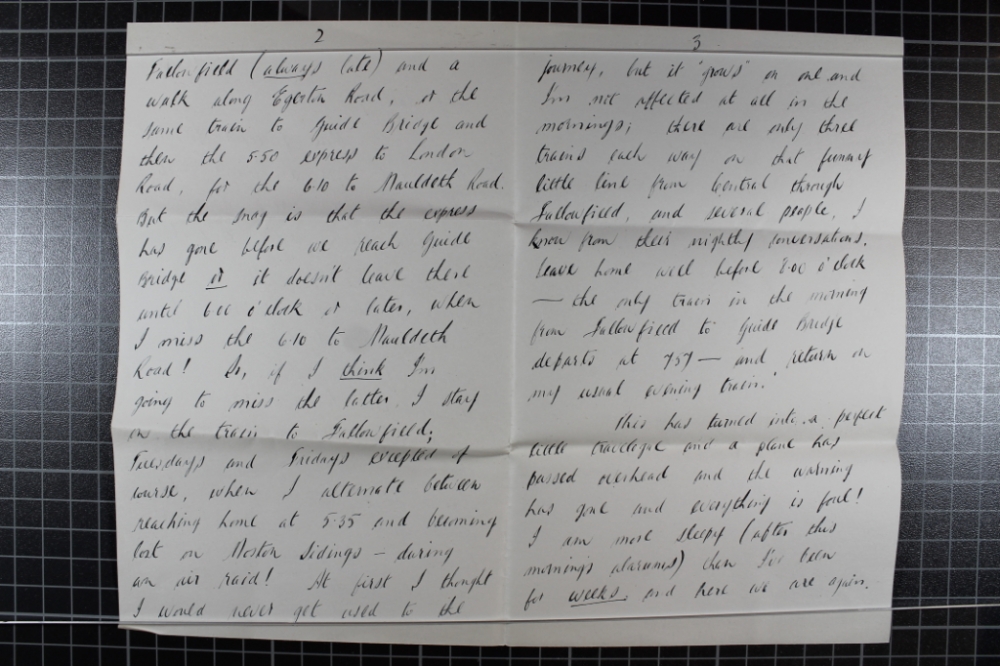 2
Fallowfield (always late) and a
walk along Egerton Road, or the
same train to Guide Bridge and
then the 5.50 express to London
Road, for the 6.10 to Mauldeth Road.
But the snag is that the express
has gone before we reach Guide
Bridge or it doesn't leave there
until 6.00 o'clock or later, when
I miss the 6.10 to Mauldeth
Road! So, if I think I'm
going to miss the latter, I stay
on the train to Fallowfield;
Tuesdays and Fridays excepted of
course, when I alternate between
reaching home at 5.35 and becoming
lost on Moston Sidings – during
an air raid! At first I thought
I would never get used to the
3
journey, but it "grows" on one and
I'm not affected at all in the
mornings; there are only three
trains each way on that funny
little line from Central through
Fallowfield, and several people, I
know from their nightly conversations,
leave home well before 8.00 o'clock
— the only train in the morning
from Fallowfield to Guide Bridge
departs at 7.57 — and return on
my usual evening train.
This has turned into a perfect
little travelogue and a plane has
passed overhead and the warning
has gone and everything is foul!
I am more sleepy (after this
morning's alarums) than I've been
for weeks, and here we are again.